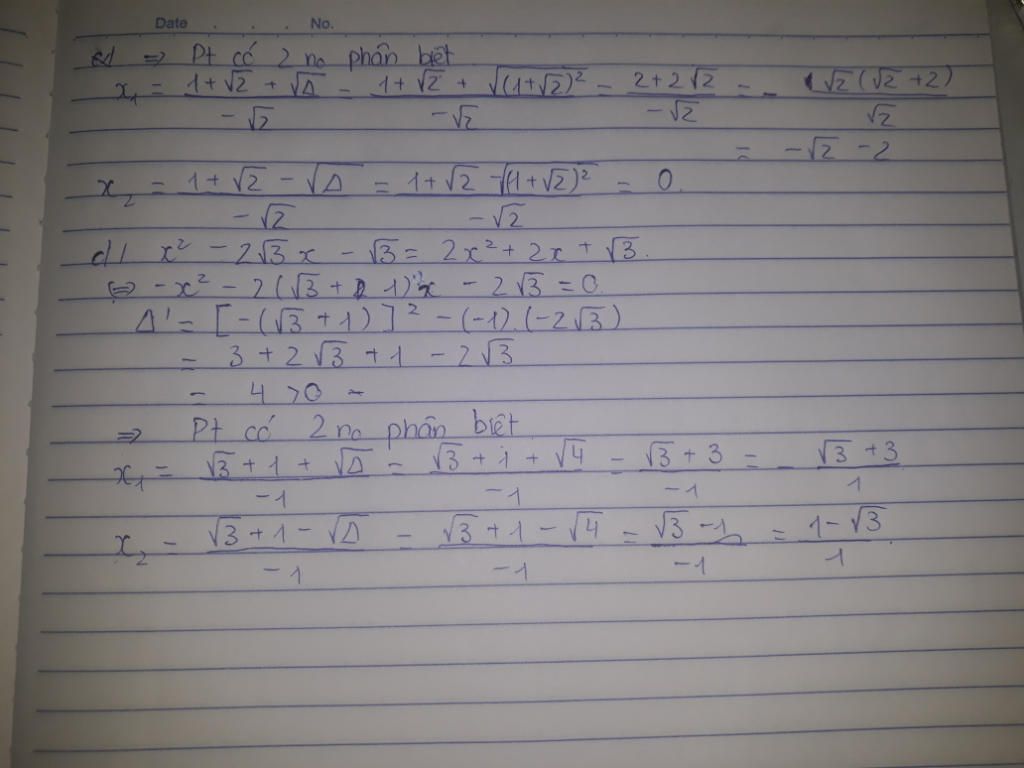 Date . . . . No.
c) ⇒ Pt có 2 no phân biệt
x₁ = (1+√2 + √Δ)/(-√2) = (1+√2 + √((1+√2)²))/(-√2) = (2+2√2)/(-√2) = - (√2(√2+2))/(√2)
= -√2 -2
x₂ = (1+√2 - √Δ)/(-√2) = (1+√2 - √((1+√2)²))/(-√2) = 0.
d) x² - 2√3 x - √3 = 2x² + 2x + √3.
⇔ -x² - 2(√3 + 1)x - 2√3 = 0.
Δ' = [-(√3 + 1)]² - (-1).(-2√3)
= 3 + 2√3 + 1 - 2√3
= 4 > 0 -
⇒ Pt có 2 no phân biệt
x₁ = (√3 + 1 + √Δ)/(-1) = (√3 + 1 + √4)/(-1) = (√3 + 3)/(-1) = - (√3 + 3)/1
x₂ = (√3 + 1 - √Δ)/(-1) = (√3 + 1 - √4)/(-1) = (√3 - 1)/(-1) = (1 - √3)/1.